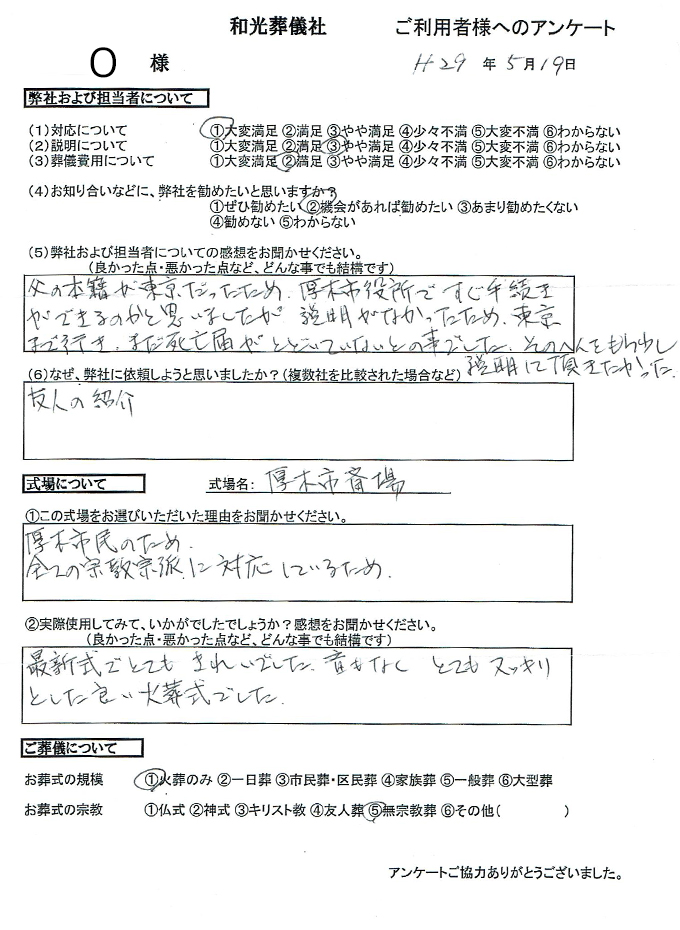 和光葬儀社 ご利用者様へのアンケート
O 様 H29 年 5 月 19 日
弊社および担当者について
(1)対応について ①大変満足 ②満足 ③やや満足 ④少々不満 ⑤大変不満 ⑥わからない
(2)説明について ①大変満足 ②満足 ③やや満足 ④少々不満 ⑤大変不満 ⑥わからない
(3)葬儀費用について ①大変満足 ②満足 ③やや満足 ④少々不満 ⑤大変不満 ⑥わからない
(4)お知り合いなどに、弊社を勧めたいと思いますか?
①ぜひ勧めたい ②機会があれば勧めたい ③あまり勧めたくない
④勧めない ⑤わからない
(5)弊社および担当者についての感想をお聞かせください。
(良かった点・悪かった点など、どんな事でも結構です)
父の本籍が東京だったため、厚木市役所ですぐ手続き
ができるのかと思いましたが 説明がなかったため、東京
まで行き、まだ死亡届がとどいていないとの事でした。そのへんをもう少し
説明して頂きたかった.
(6)なぜ、弊社に依頼しようと思いましたか?(複数社を比較された場合など)
友人の紹介
式場について 式場名: 厚木市斎場
①この式場をお選びいただいた理由をお聞かせください。
厚木市民のため.
全ての宗教宗派に対応しているため.
②実際使用してみて、いかがでしたでしょうか?感想をお聞かせください。
(良かった点・悪かった点など、どんな事でも結構です)
最新式でとても きれいでした. 音もなく とても スッキリ
とした良い火葬式でした.
ご葬儀について
お葬式の規模 ①火葬のみ ②一日葬 ③市民葬・区民葬 ④家族葬 ⑤一般葬 ⑥大型葬
お葬式の宗教 ①仏式 ②神式 ③キリスト教 ④友人葬 ⑤無宗教葬 ⑥その他( )
アンケートご協力ありがとうございました。